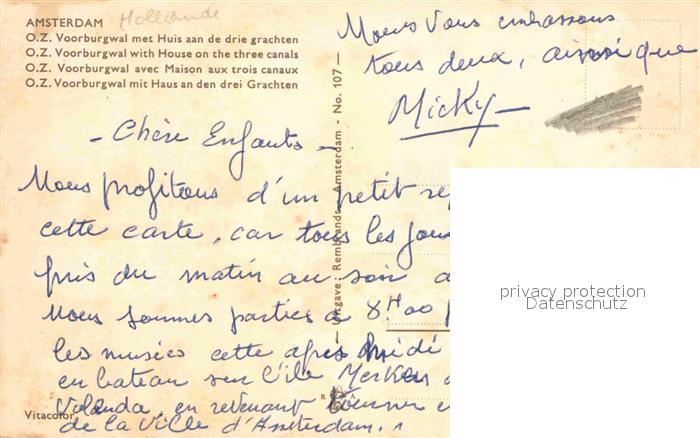 AMSTERDAM Hollande
O.Z. Voorburgwal met Huis aan de drie grachten
O.Z. Voorburgwal with House on the three canals
O.Z. Voorburgwal avec Maison aux trois canaux
O.Z. Voorburgwal mit Haus an den drei Grachten
Uitgave: Rembrandt - Amsterdam - No. 107 —
Nous Vous embrassons
tous deux, ainsi que
Micky —
- Chère Enfants -
Nous profitons d'un petit re
cette carte, car tous les jou
pris du matin au soir
Nous sommes parties à 8H00
les musées cette après Midi
en bateau sur l'île Merken
Volenda, en revenant tourner
de la Ville d'Amsterdam.
Vitacolor
privacy protection
Datenschutz